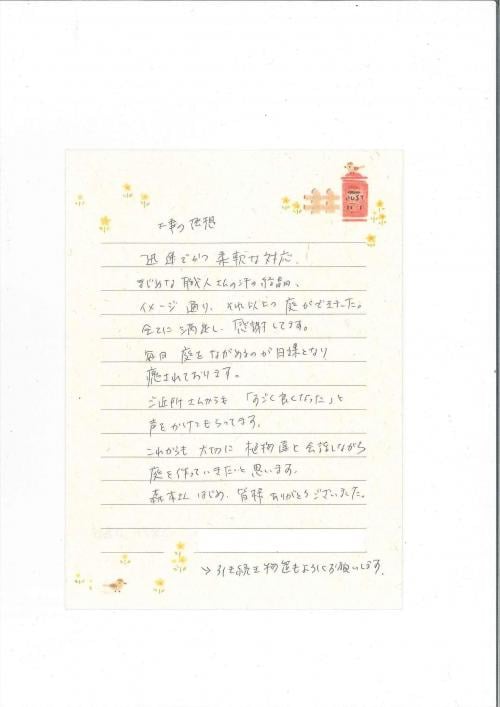 POST
工事の感想
迅速でかつ柔軟な対応、
まじめな職人さんの汗の結晶、
イメージ通り、それ以上の庭ができました。
全てに満足し、感謝してます。
毎日庭をながめるのが日課となり
癒されております。
ご近所さんからも「すごく良くなった」と
声をかけてもらってます。
これからも大切に植物達と会話しながら
庭を作っていきたいと思います。
森本さんはじめ、皆様ありがとうございました。
→引き続き物置もよろしくお願いします。